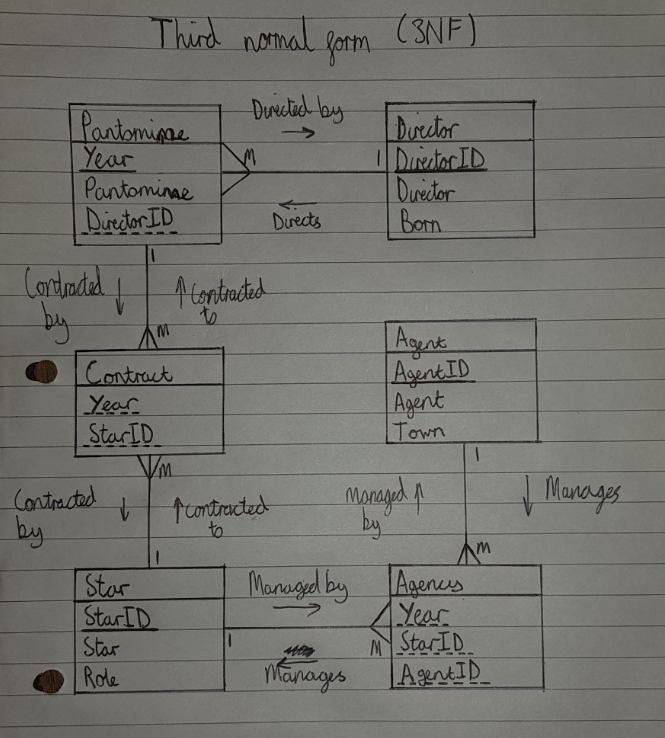 Third normal form (3NF)
Pantomime
Year
Pantomime
DirectorID
Directed by
M
1
Directs
Director
DirectorID
Director
Born
1
Contracted by
Contracted to
M
Contract
Year
StarID
M
Contracted by
Contracted to
1
Agent
AgentID
Agent
Town
1
Managed by
Manages
M
Star
StarID
Star
Role
Managed by
1
M
Manages
Agency
Year
StarID
AgentID